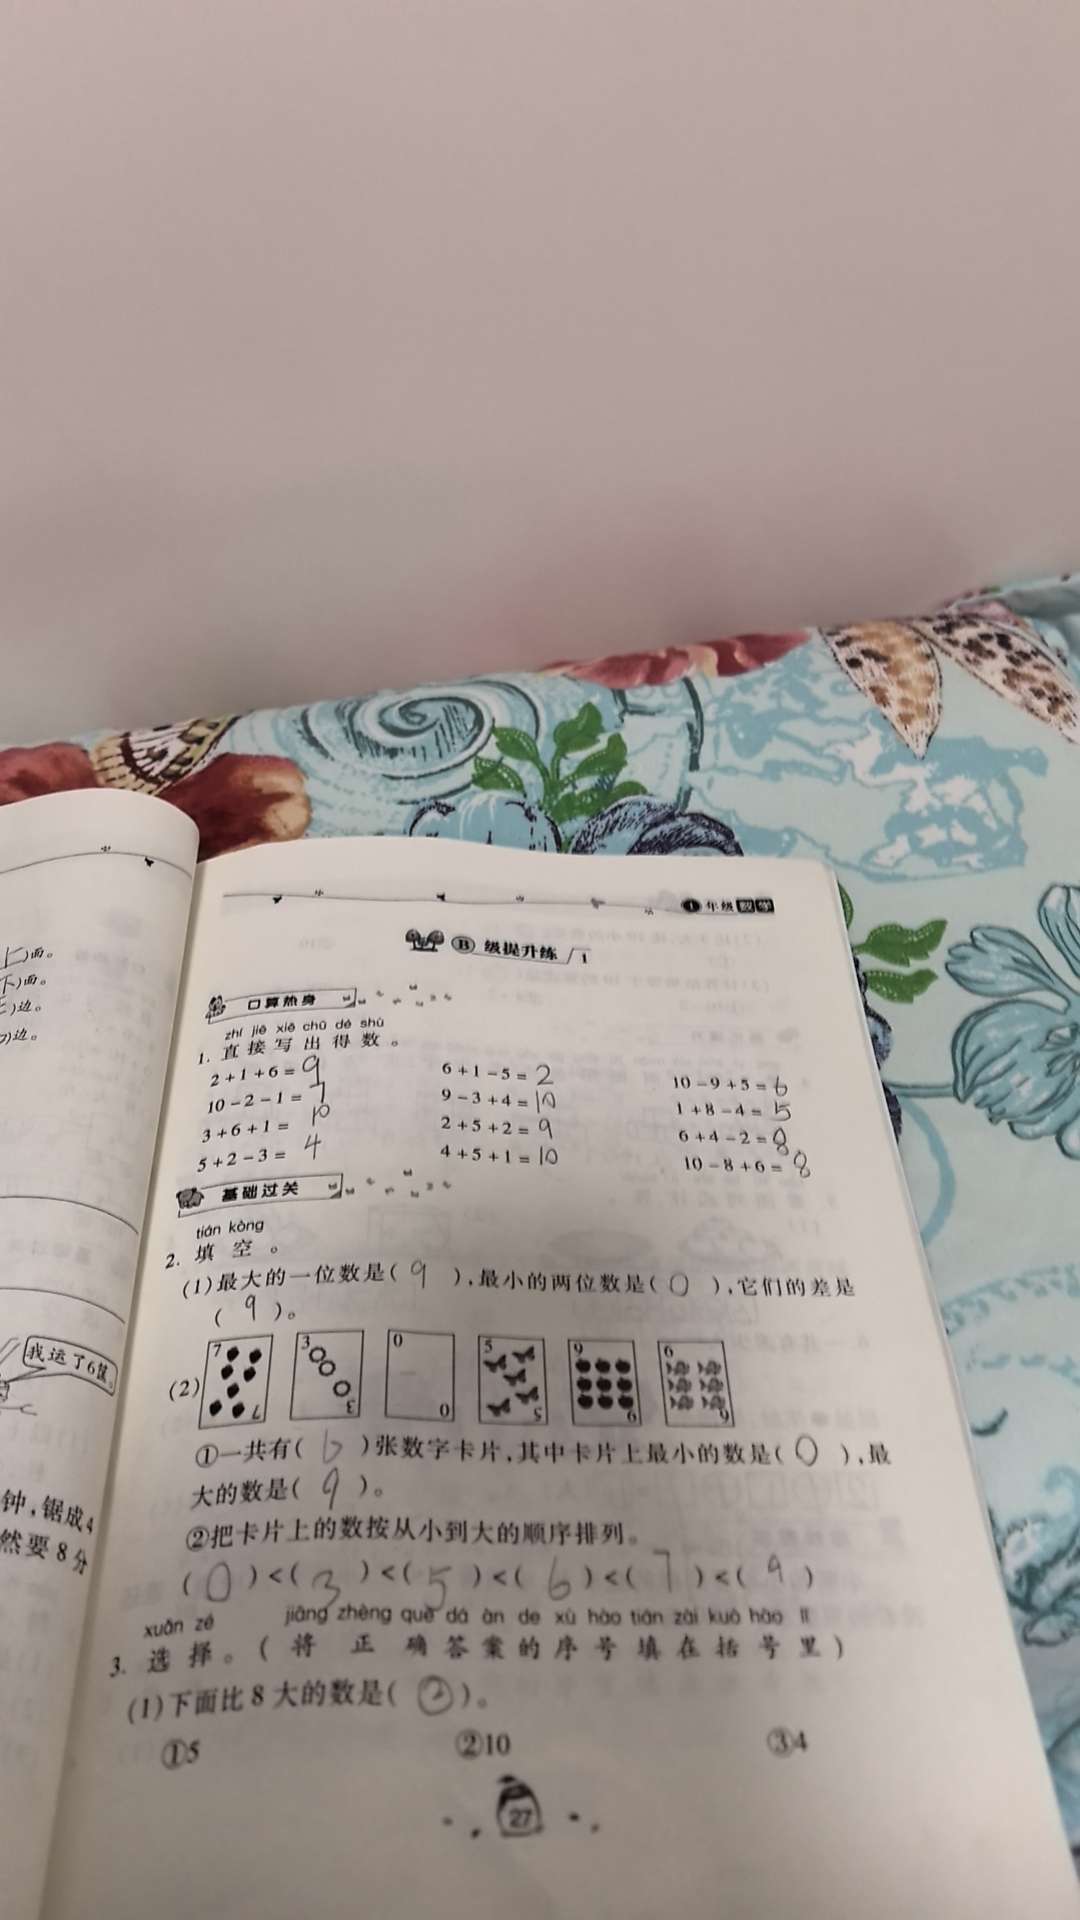 上)面。
下)面。
)边。
)边。
我运了6筐。
钟,锯成4
然要8分
1年级数学
B级提升练 1
口算热身
zhí jiē xiě chū dé shù
1. 直接写出得数。
2+1+6=9 6+1-5=2 10-9+5=6
10-2-1=7 9-3+4=10 1+8-4=5
3+6+1=10 2+5+2=9 6+4-2=8
5+2-3=4 4+5+1=10 10-8+6=8
基础过关
tián kòng
2. 填空。
(1)最大的一位数是(9),最小的两位数是(0),它们的差是
(9)。
(2) 7 7 3 3 0 0 5 5 9 9 6 6
①一共有(6)张数字卡片,其中卡片上最小的数是(0),最
大的数是(9)。
②把卡片上的数按从小到大的顺序排列。
(0)<(3)<(5)<(6)<(7)<(9)
xuǎn zé jiāng zhèng què dá àn de xù hào tián zài kuò hào lǐ
3. 选择。(将正确答案的序号填在括号里)
(1)下面比8大的数是(②)。
①5 ②10 ③4
27